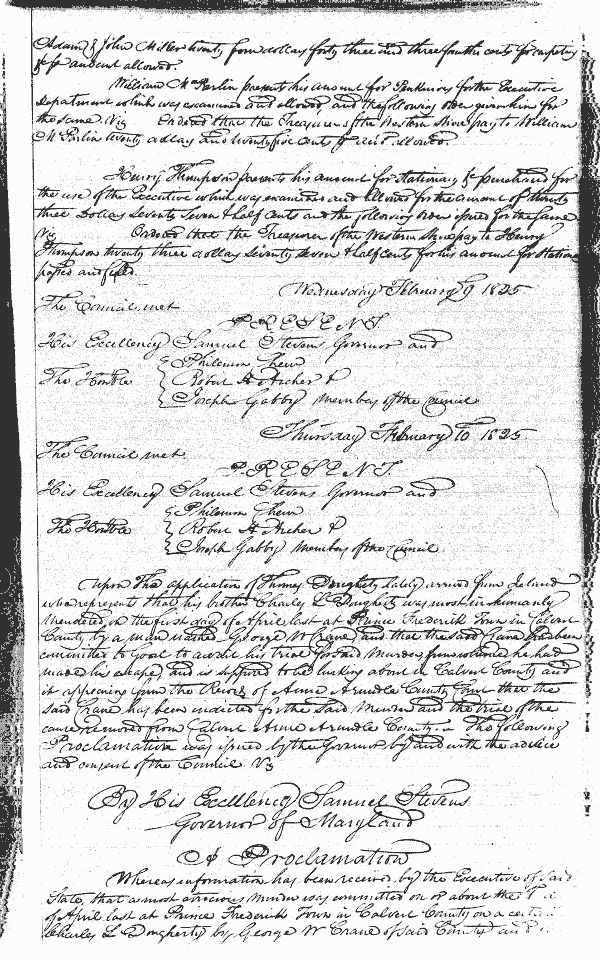 Adam & John Miller twenty four dollars forty three and three fourths cents for carpeting
&c. for account allowed.
William McParlin presents his account for Penknives for the Executive
Department which was examined and allowed, and the following order given him for
the same. Viz Ordered that the Treasurer of the Western Shore pay to William
McParlin twenty dollars and twenty five cents allowed.
Henry Thompson presents his account for Stationary &c furnished for
the use of the Executive which was examined and allowed for the amount of twenty
three Dollars Seventy Seven & half Cents and the following order issued for the same
Viz Ordered that the Treasurer of the Western Shore pay to Henry
Thompson twenty three dollars Seventy Seven & half cents for his account for Station
passed and filed.
Wednesday February 9 1825
The Council met
PRESENT
His Excellency Samuel Stevens Governor and
Philemon Chew
The Honble Robert H Archer &
Joseph Gabby Members of the Council
Thursday February 10 1825
The Council met
PRESENT
His Excellency Samuel Stevens Governor and
Philemon Chew
The Honble Robert H Archer &
Joseph Gabby Members of the Council
Upon the application of Thomas Dougherty lately arrived from Ireland
who represents that his brother Charles L Dougherty was most inhumanly
Murdered on the first day of April last at Prince Frederick Town in Calvert
County by a man named George W Crane and that the said Crane has been
committed to Goal to await his trial for said Murder, from whence he had
made his escape, and is supposed to be lurking about in Calvert County and
it appearing from the Record of Anne Arundle County Court that the
said Crane has been indicted for the said Murder and the trial of the
cause removed from Calvert Anne Arundle County. The following
Proclamation was issued by the Governor by and with the advice
and consent of the Council Viz
By His Excellency Samuel Stevens
Governor of Maryland
A Proclamation
Whereas information has been received by the Executive of said
State, that a most atrocious Murder was committed on or about the
of April last at Prince Frederick Town in Calvert County on a certain
Charles L Dougherty by George W Crane of said County and